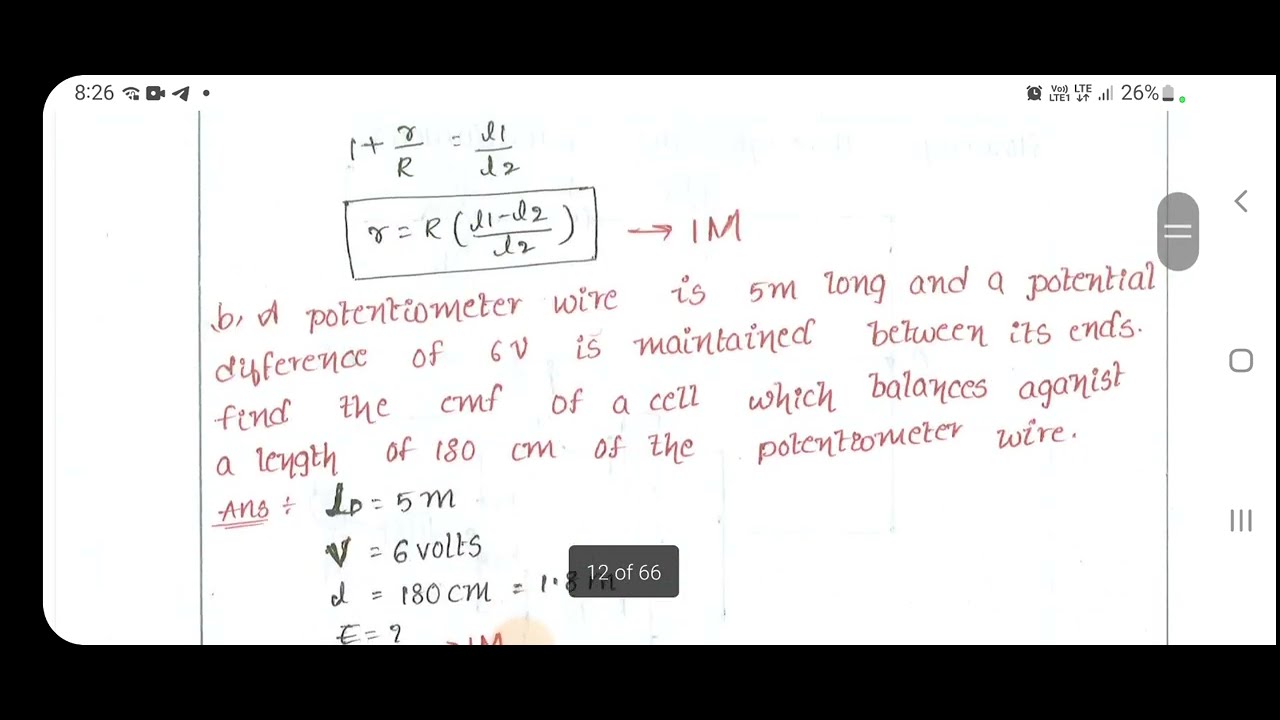 8:26
Vo)) LTE
LTE1 26%
1 + r/R = l1/l2
r = R (l1-l2/l2) → 1M
b, A potentiometer wire is 5m long and a potential
difference of 6V is maintained between its ends.
find the emf of a cell which balances aganist
a length of 180 cm of the potentiometer wire.
Ans ÷ lp = 5m
V = 6 volts
l = 180 cm = 1.8 m
12 of 66
E = ?
1M